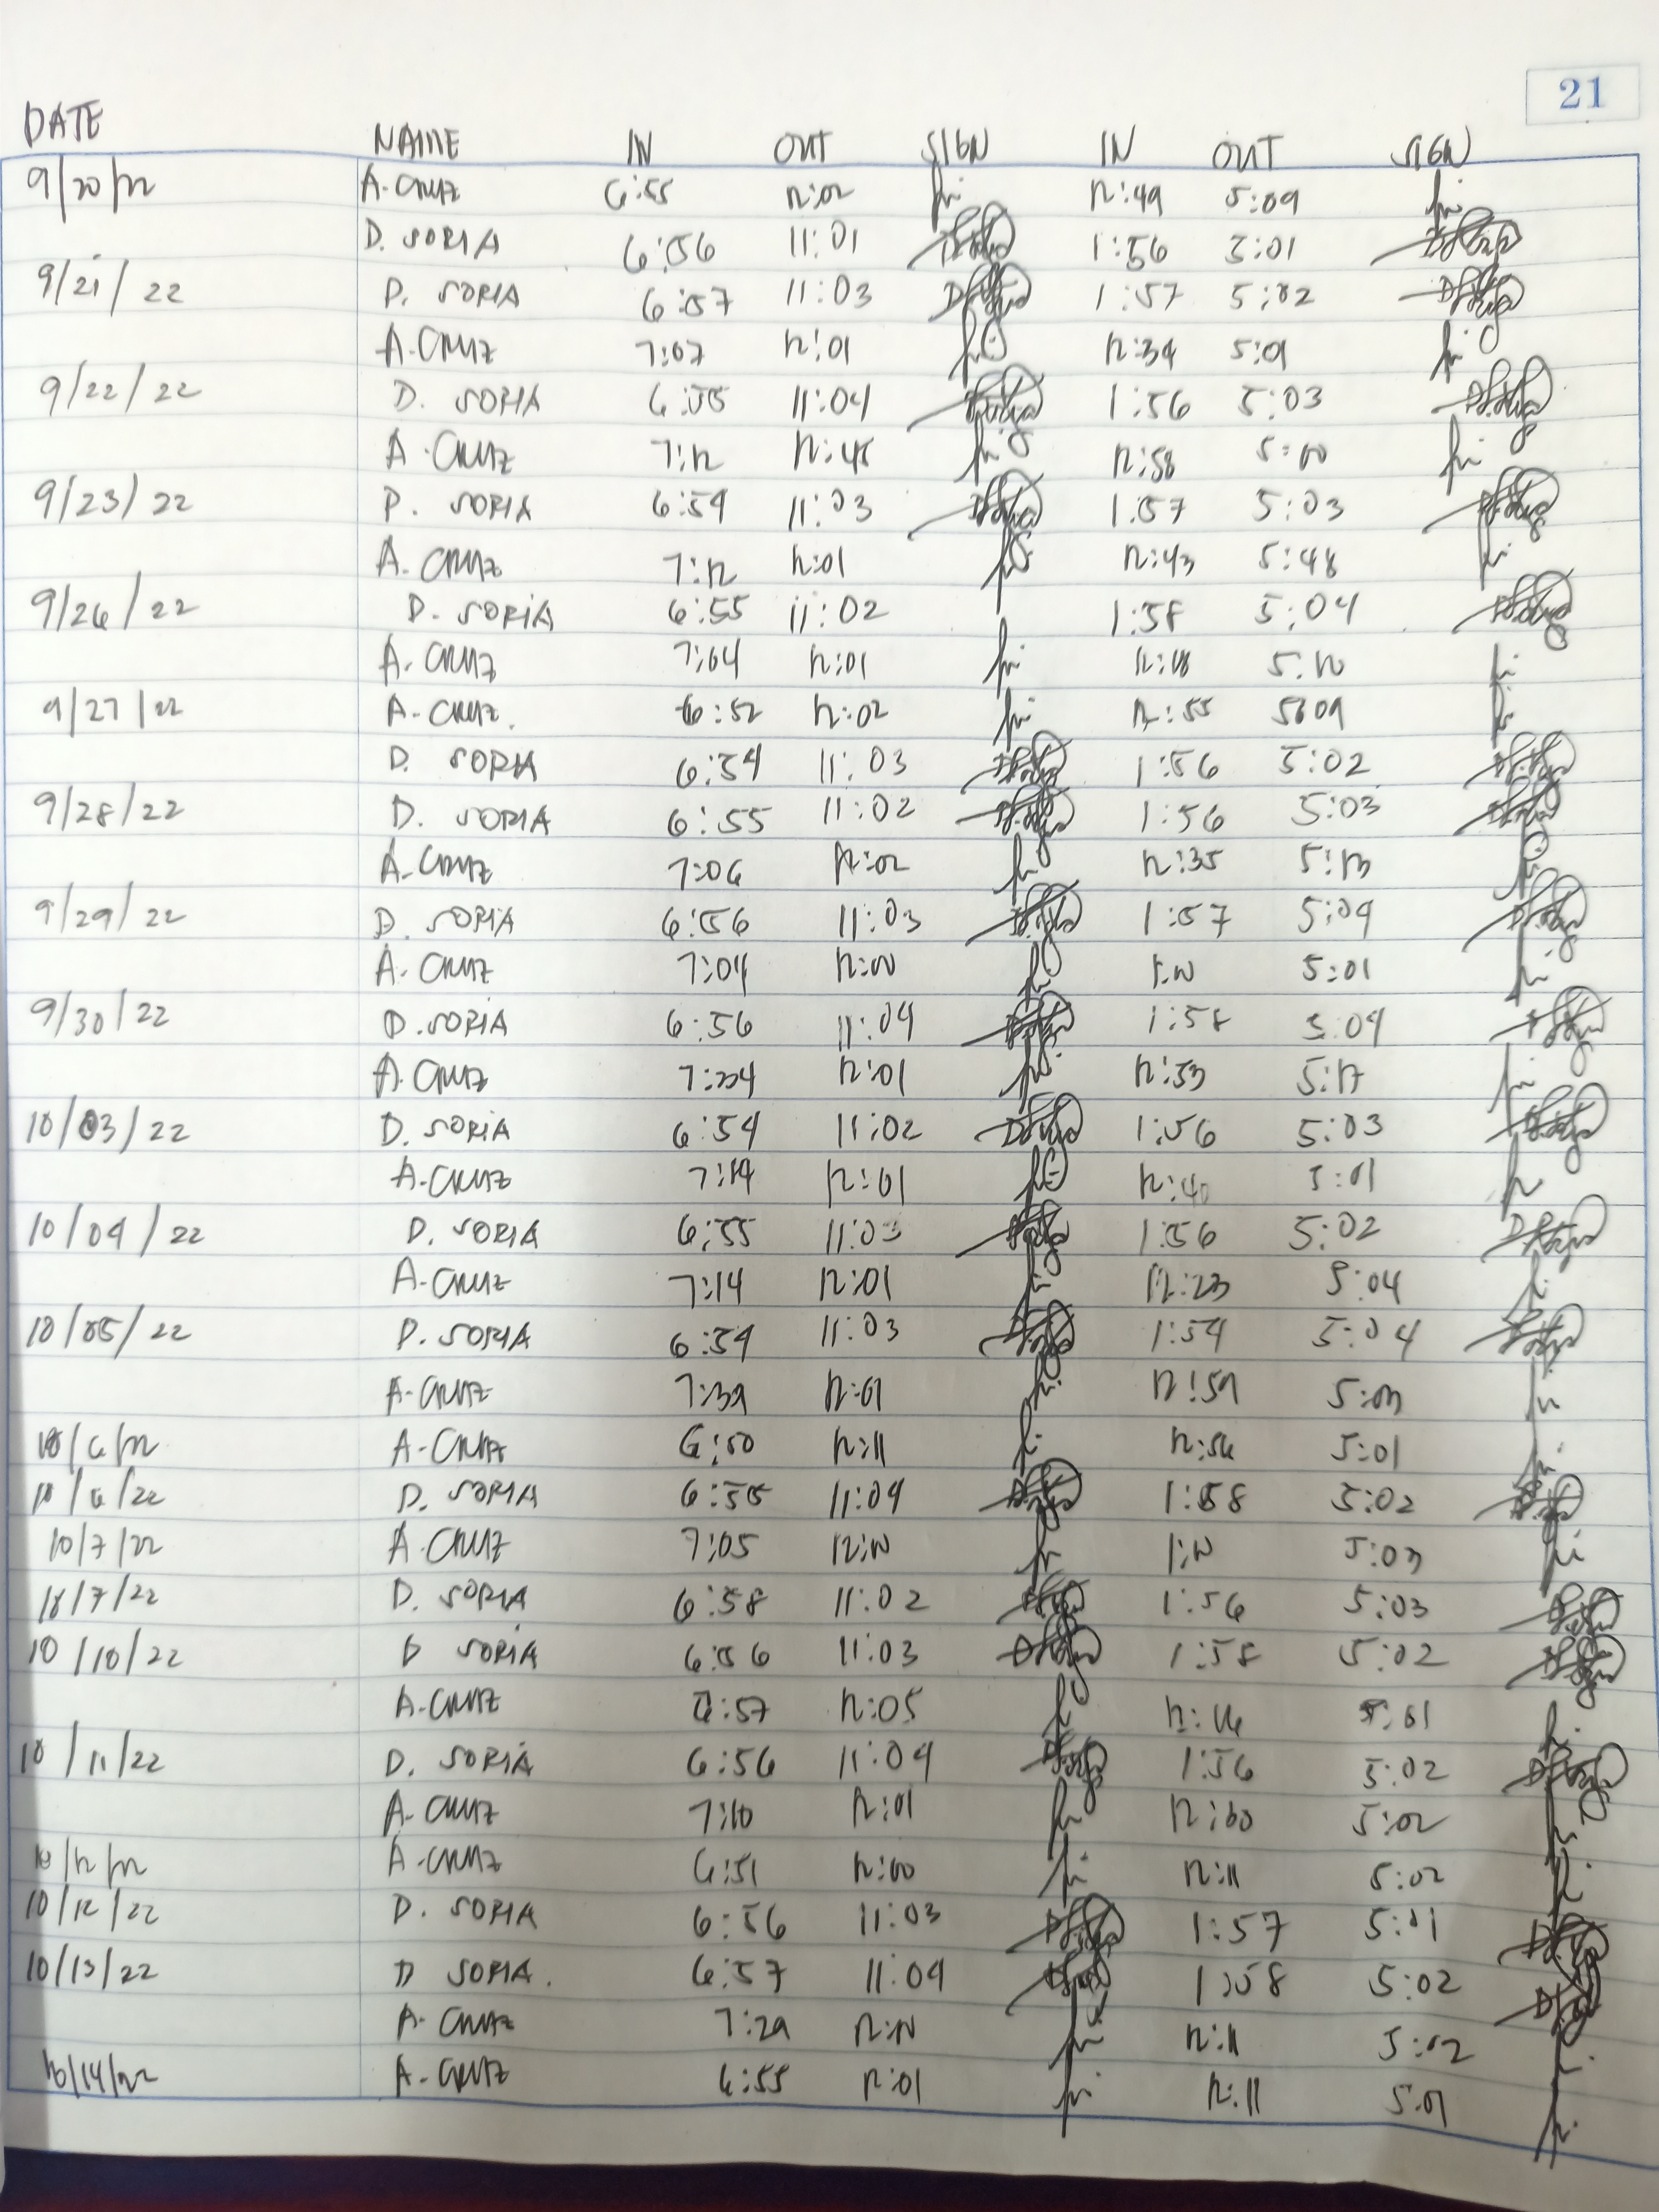 21
DATE NAME IN OUT SIGN IN OUT SIGN
9/20/22 A. CRUZ 6:55 12:02 12:49 5:09
D. SORIA 6:56 11:01 1:56 5:01
9/21/22 D. SORIA 6:57 11:03 1:57 5:02
A. CRUZ 7:07 12:01 12:34 5:01
9/22/22 D. SORIA 6:55 11:04 1:56 5:03
A. CRUZ 7:12 12:45 12:58 5:00
9/23/22 D. SORIA 6:54 11:03 1:57 5:03
A. CRUZ 7:12 12:01 12:43 5:48
9/26/22 D. SORIA 6:55 11:02 1:58 5:04
A. CRUZ 7:04 12:01 5:10
9/27/22 A. CRUZ. 6:52 12:02 12:55 5:09
D. SORIA 6:54 11:03 1:56 5:02
9/28/22 D. SORIA 6:55 11:02 1:56 5:03
A. CRUZ 7:06 12:02 12:35 5:13
9/29/22 D. SORIA 6:56 11:03 1:57 5:04
A. CRUZ 7:04 12:00 5:01
9/30/22 D. SORIA 6:56 11:04 1:58 5:04
A. CRUZ 7:24 12:01 12:53 5:17
10/03/22 D. SORIA 6:54 11:02 1:56 5:03
A. CRUZ 7:14 12:01 12:40 5:01
10/04/22 D. SORIA 6:55 11:03 1:56 5:02
A. CRUZ 7:14 12:01 12:23 5:04
10/05/22 D. SORIA 6:54 11:03 1:54 5:04
A. CRUZ 7:39 12:01 12:59 5:03
10/6/22 A. CRUZ 6:50 12:11 12:56 5:01
10/6/22 D. SORIA 6:55 11:04 1:58 5:02
10/7/22 A. CRUZ 7:05 5:03
10/7/22 D. SORIA 6:58 11:02 1:56 5:03
10/10/22 D SORIA 6:56 11:03 1:58 5:02
A. CRUZ 6:57 12:05 12:16 5:01
10/11/22 D. SORIA 6:56 11:04 1:56 5:02
A. CRUZ 7:10 12:01 5:02
10/12/22 A. CRUZ 6:51 12:00 12:11 5:02
10/12/22 D. SORIA 6:56 11:03 1:57 5:01
10/13/22 D SORIA. 6:57 11:04 1:58 5:02
A. CRUZ 7:29 12:11 5:02
10/14/22 A. CRUZ 6:55 12:01 12:11 5:01